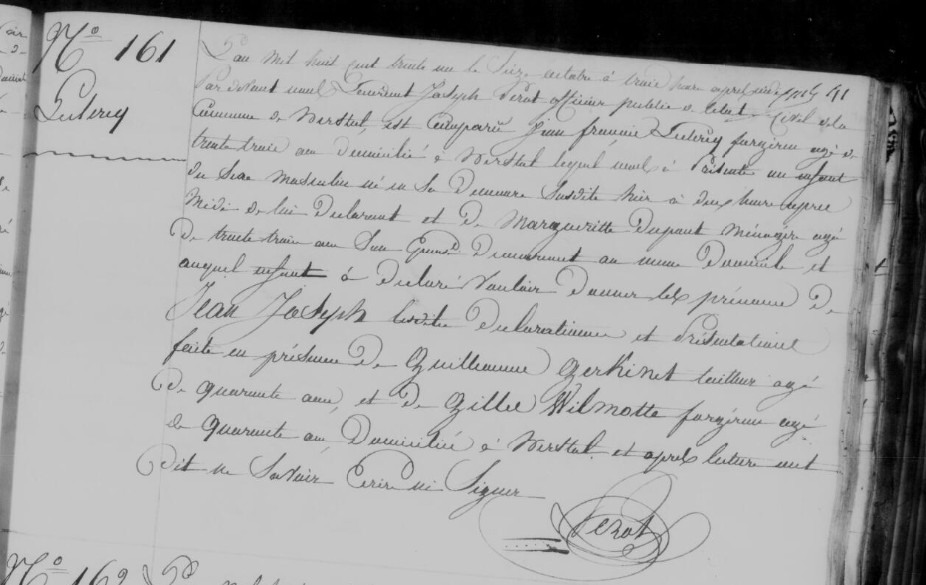 N° 161
Leclercq
L'an Mil huit cent trente un le Seize octobre à trois heures après midi
Par devant nous Laurent Joseph Perot officier public de l'état Civil de la
Commune de Herstal, est Comparu Jean françois Leclercq forgeron agé de
trente trois ans Domicilié à Herstal lequel nous à Présenté un enfant
du Sexe Masculin né en Sa Demeure Susdite hier à deux heures après
Midi de lui Déclarant et De Margueritte Dupont Ménagère agé
De trente trois ans Son Epouse Demeurant au meme Domicile et
auquel enfant à Déclaré Vouloir Donner les prénoms De
Jean Joseph lesdites Déclarations et Présentations
faite en présence De Guilleaume Gerkinet tailleur agé
De quarante ans, et De Gilles Wilmotte forgeron agé
de quarante ans Domicilié à Herstal et après lecture ont
Dit ne Savoir Ecrire ni Signer
Perot
N° 162